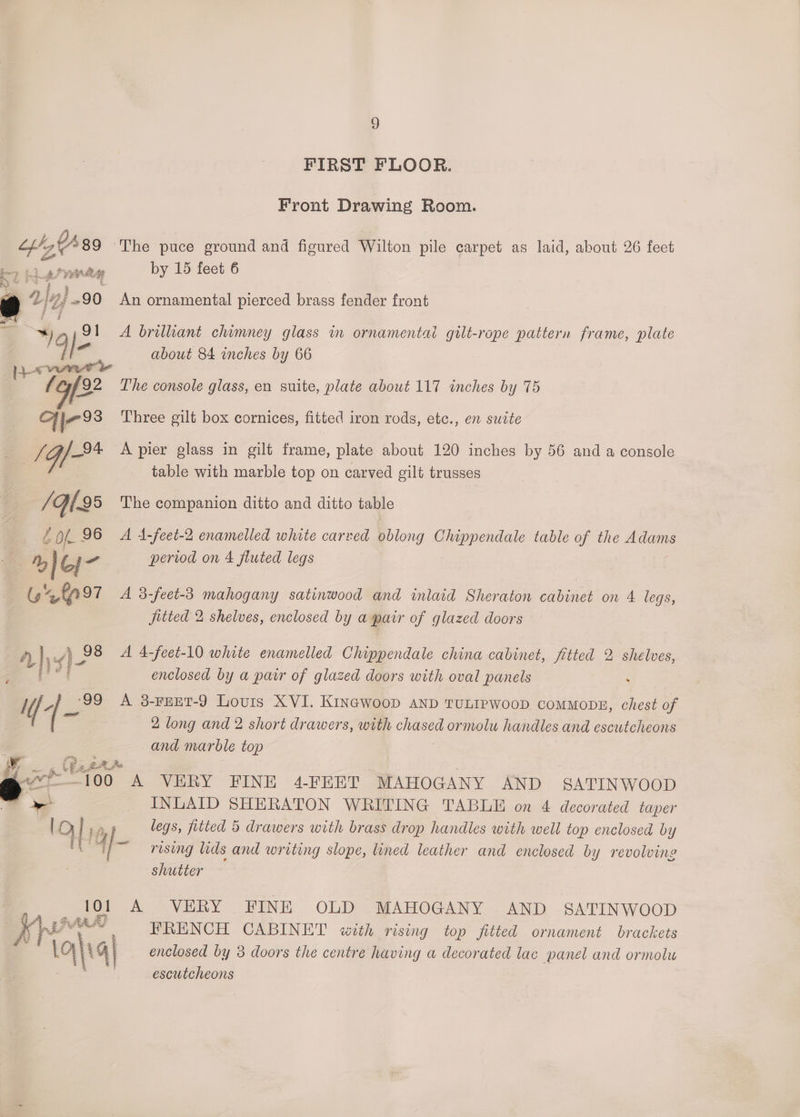 9
FIRST FLOOR.
Front Drawing Room.
89 The puce ground and figured Wilton pile carpet as laid, about 26 feet
by 15 feet 6
90 An ornamental pierced brass fender front
91 A brilliant chimney glass in ornamental gilt-rope pattern frame, plate
about 84 inches by 66
92 The console glass, en suite, plate about 117 inches by 75
93 Three gilt box cornices, fitted iron rods, etc., en suite
94 A pier glass in gilt frame, plate about 120 inches by 56 and a console
table with marble top on carved gilt trusses
95 The companion ditto and ditto table
96 A 4-feet-2 enamelled white carved oblong Chippendale table of the Adams
period on 4 fluted legs
97 A 3-feet-3 mahogany satinwood and inlaid Sheraton cabinet on 4 legs,
fitted 2 shelves, enclosed by a pair of glazed doors
98 A 4-feet-10 white enamelled Chippendale china cabinet, fitted 2 shelves,
enclosed by a pair of glazed doors with oval panels
99 A 3-FEET-9 LOUIS XVI. KINGWOOD AND TULIPWOOD COMMODE, chest of
2 long and 2 short drawers, with chased ormolu handles and escutcheons
and marble top
100 A VERY FINE 4-FEET MAHOGANY AND SATINWOOD
INLAID SHERATON WRITING TABLE on 4 decorated taper
legs, fitted 5 drawers with brass drop handles with well top enclosed by
rising lids and writing slope, lined leather and enclosed by revolving
shutter
101 A VERY FINE OLD MAHOGANY AND SATINWOOD
FRENCH CABINET with rising top fitted ornament brackets
enclosed by 3 doors the centre having a decorated lac panel and ormolu
escutcheons